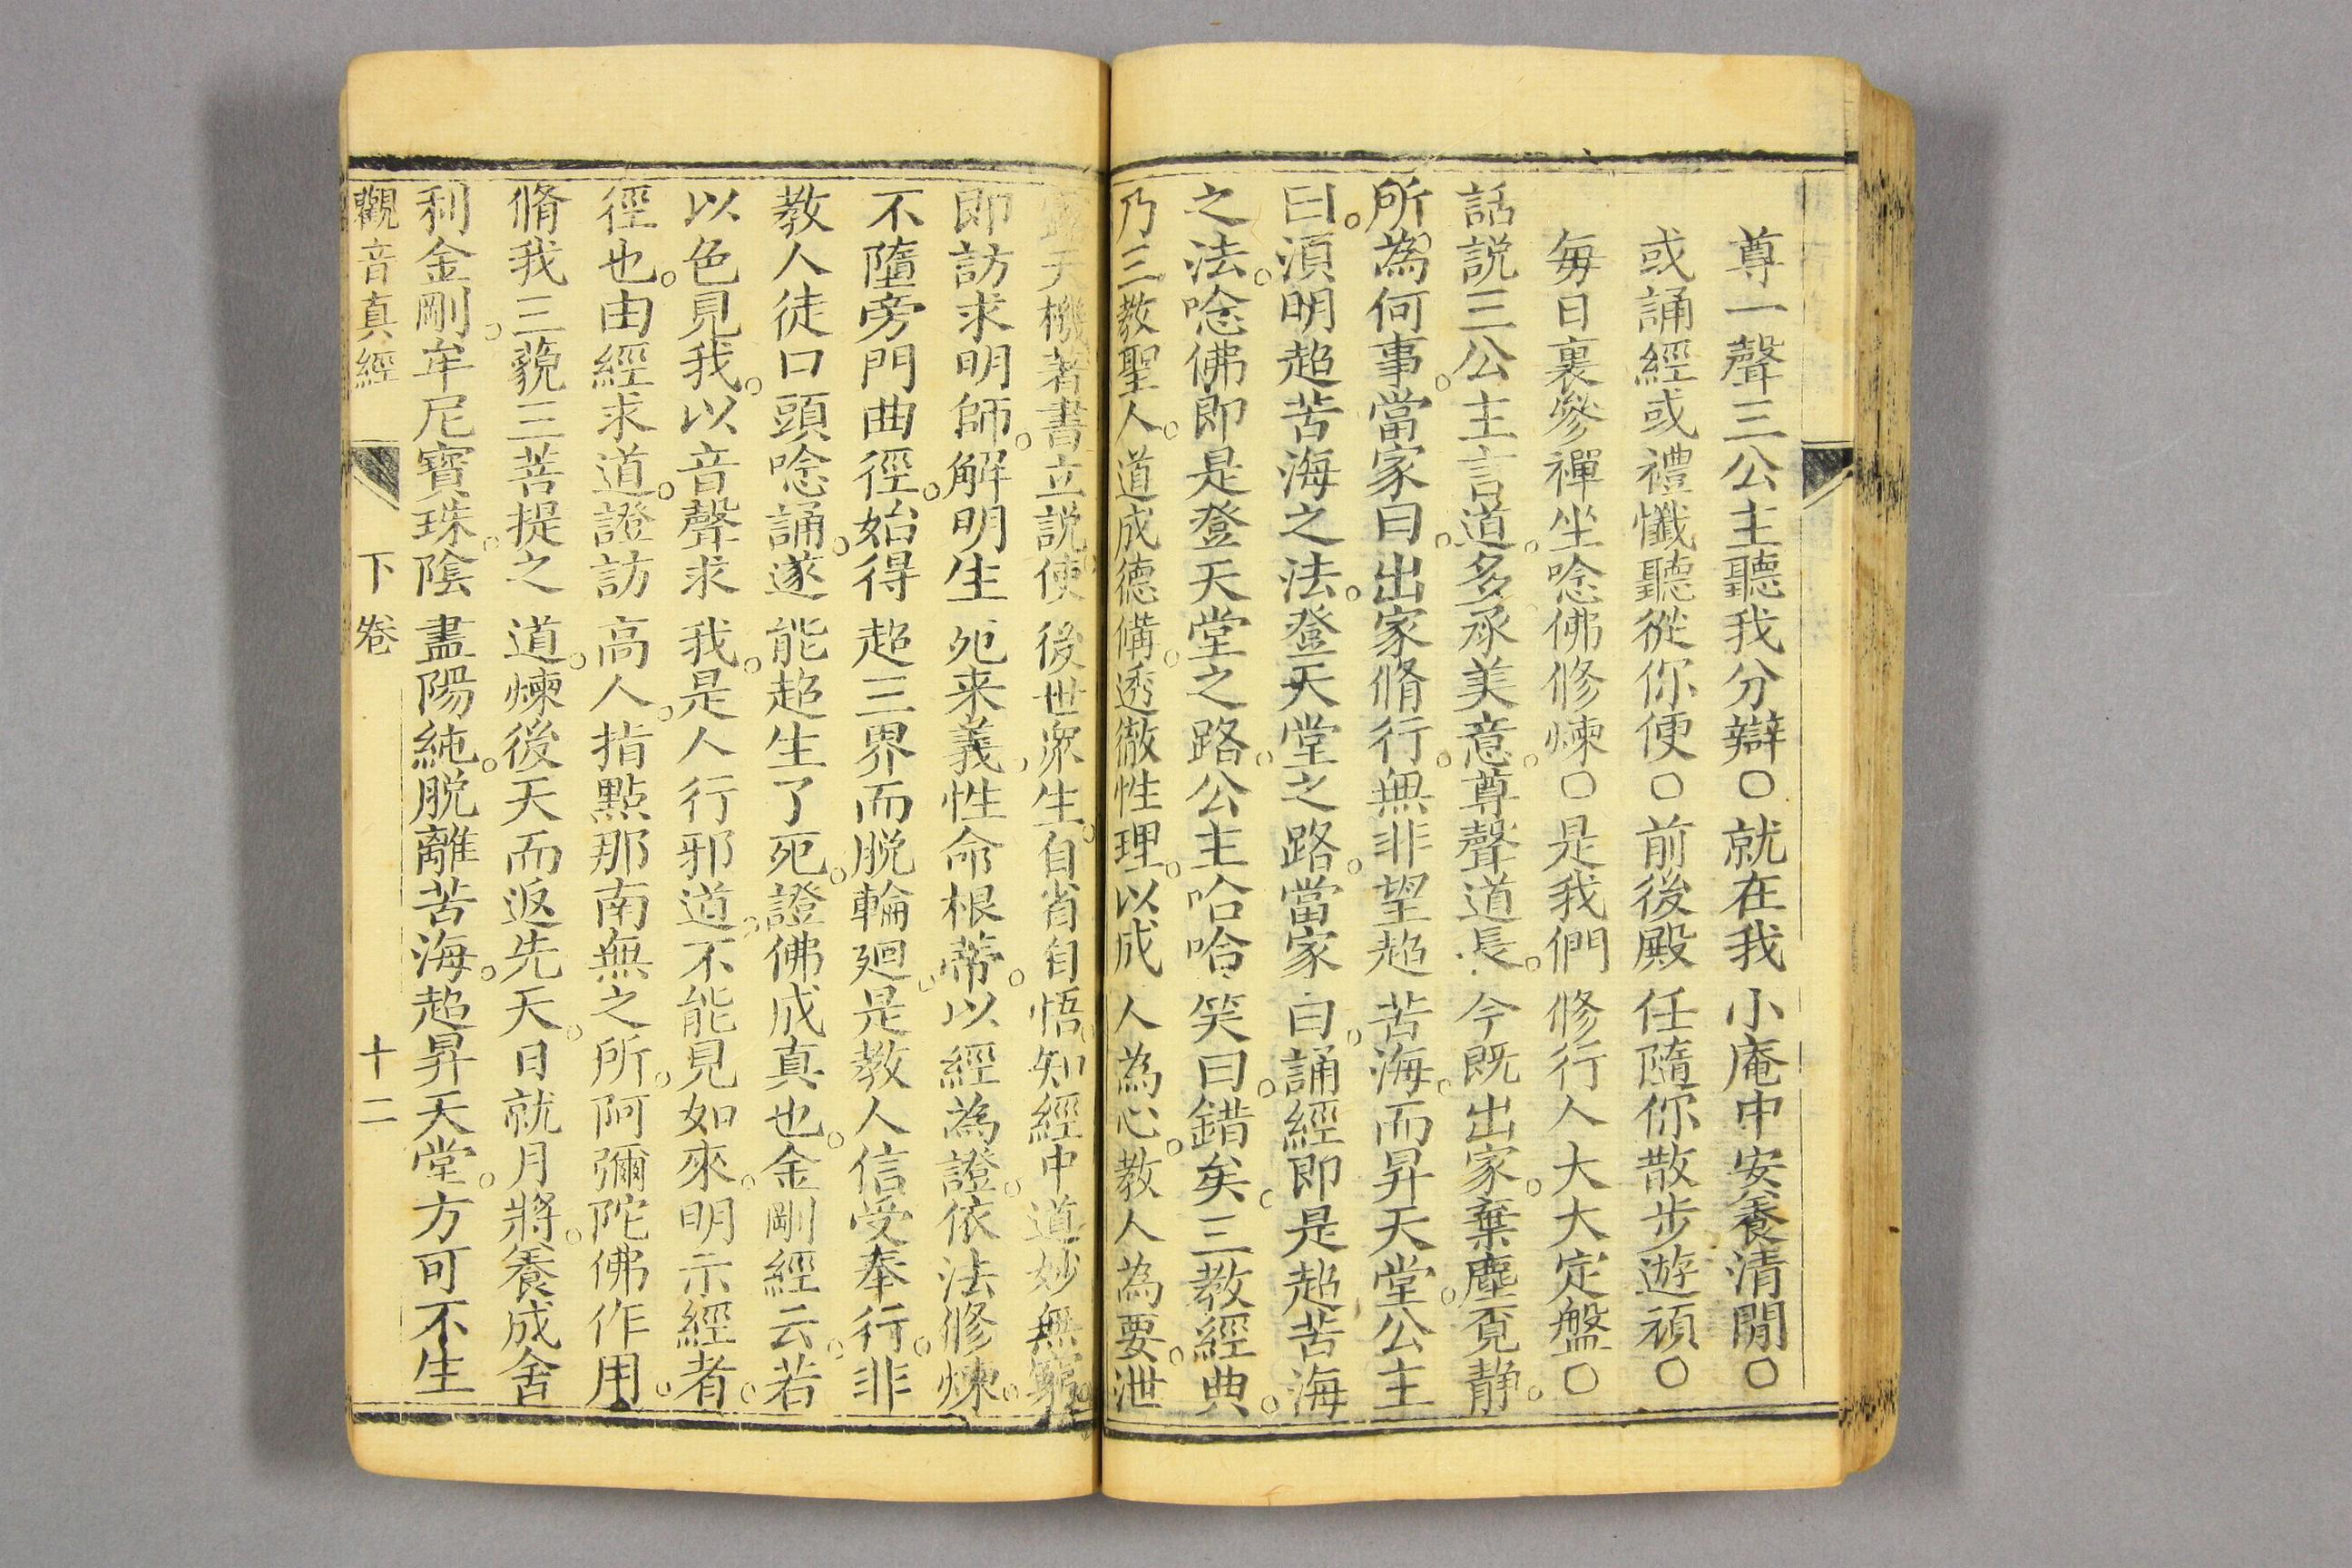 尊一聲三公主聽我分辯○就在我小庵中安養清閒○
或誦經或禮懺聽從你便○前後殿任隨你散步遊頑○
每日裏參禪坐唸佛修煉○是我們修行人大大定盤○
話説三公主言道。多承美意。尊聲道長。今既出家。棄塵覔静。
所為何事。當家曰。出家脩行。無非望超苦海。而昇天堂。公主
曰。湏明超苦海之法。登天堂之路。當家曰。誦經即是超苦海
之法。唸佛即是登天堂之路。公主哈哈笑曰。錯矣。三教經典。
乃三教聖人。道成德備。透徹性理。以成人為心。教人為要。泄
露天機。著書立説。使後世衆生。自省自悟。知經中道妙無窮。
即訪求明師。解明生死来義。性命根蒂。以經為證。依法修煉。
不墮旁門曲徑。始得超三界而脱輪廻。是教人信受奉行。非
教人徒口頭唸誦。遂能超生了死。證佛成真也。金剛經云。若
以色見我。以音聲求我。是人行邪道。不能見如來。明示經者。
徑也。由經求道。證訪高人。指點那南無之所。阿彌陀佛作用。
脩我三藐三菩提之道。煉後天而返先天。日就月將。養成舍
利金剛。牟尼寶珠。陰盡陽純。脱離苦海。超昇天堂。方可不生
觀音真經 下卷 十二